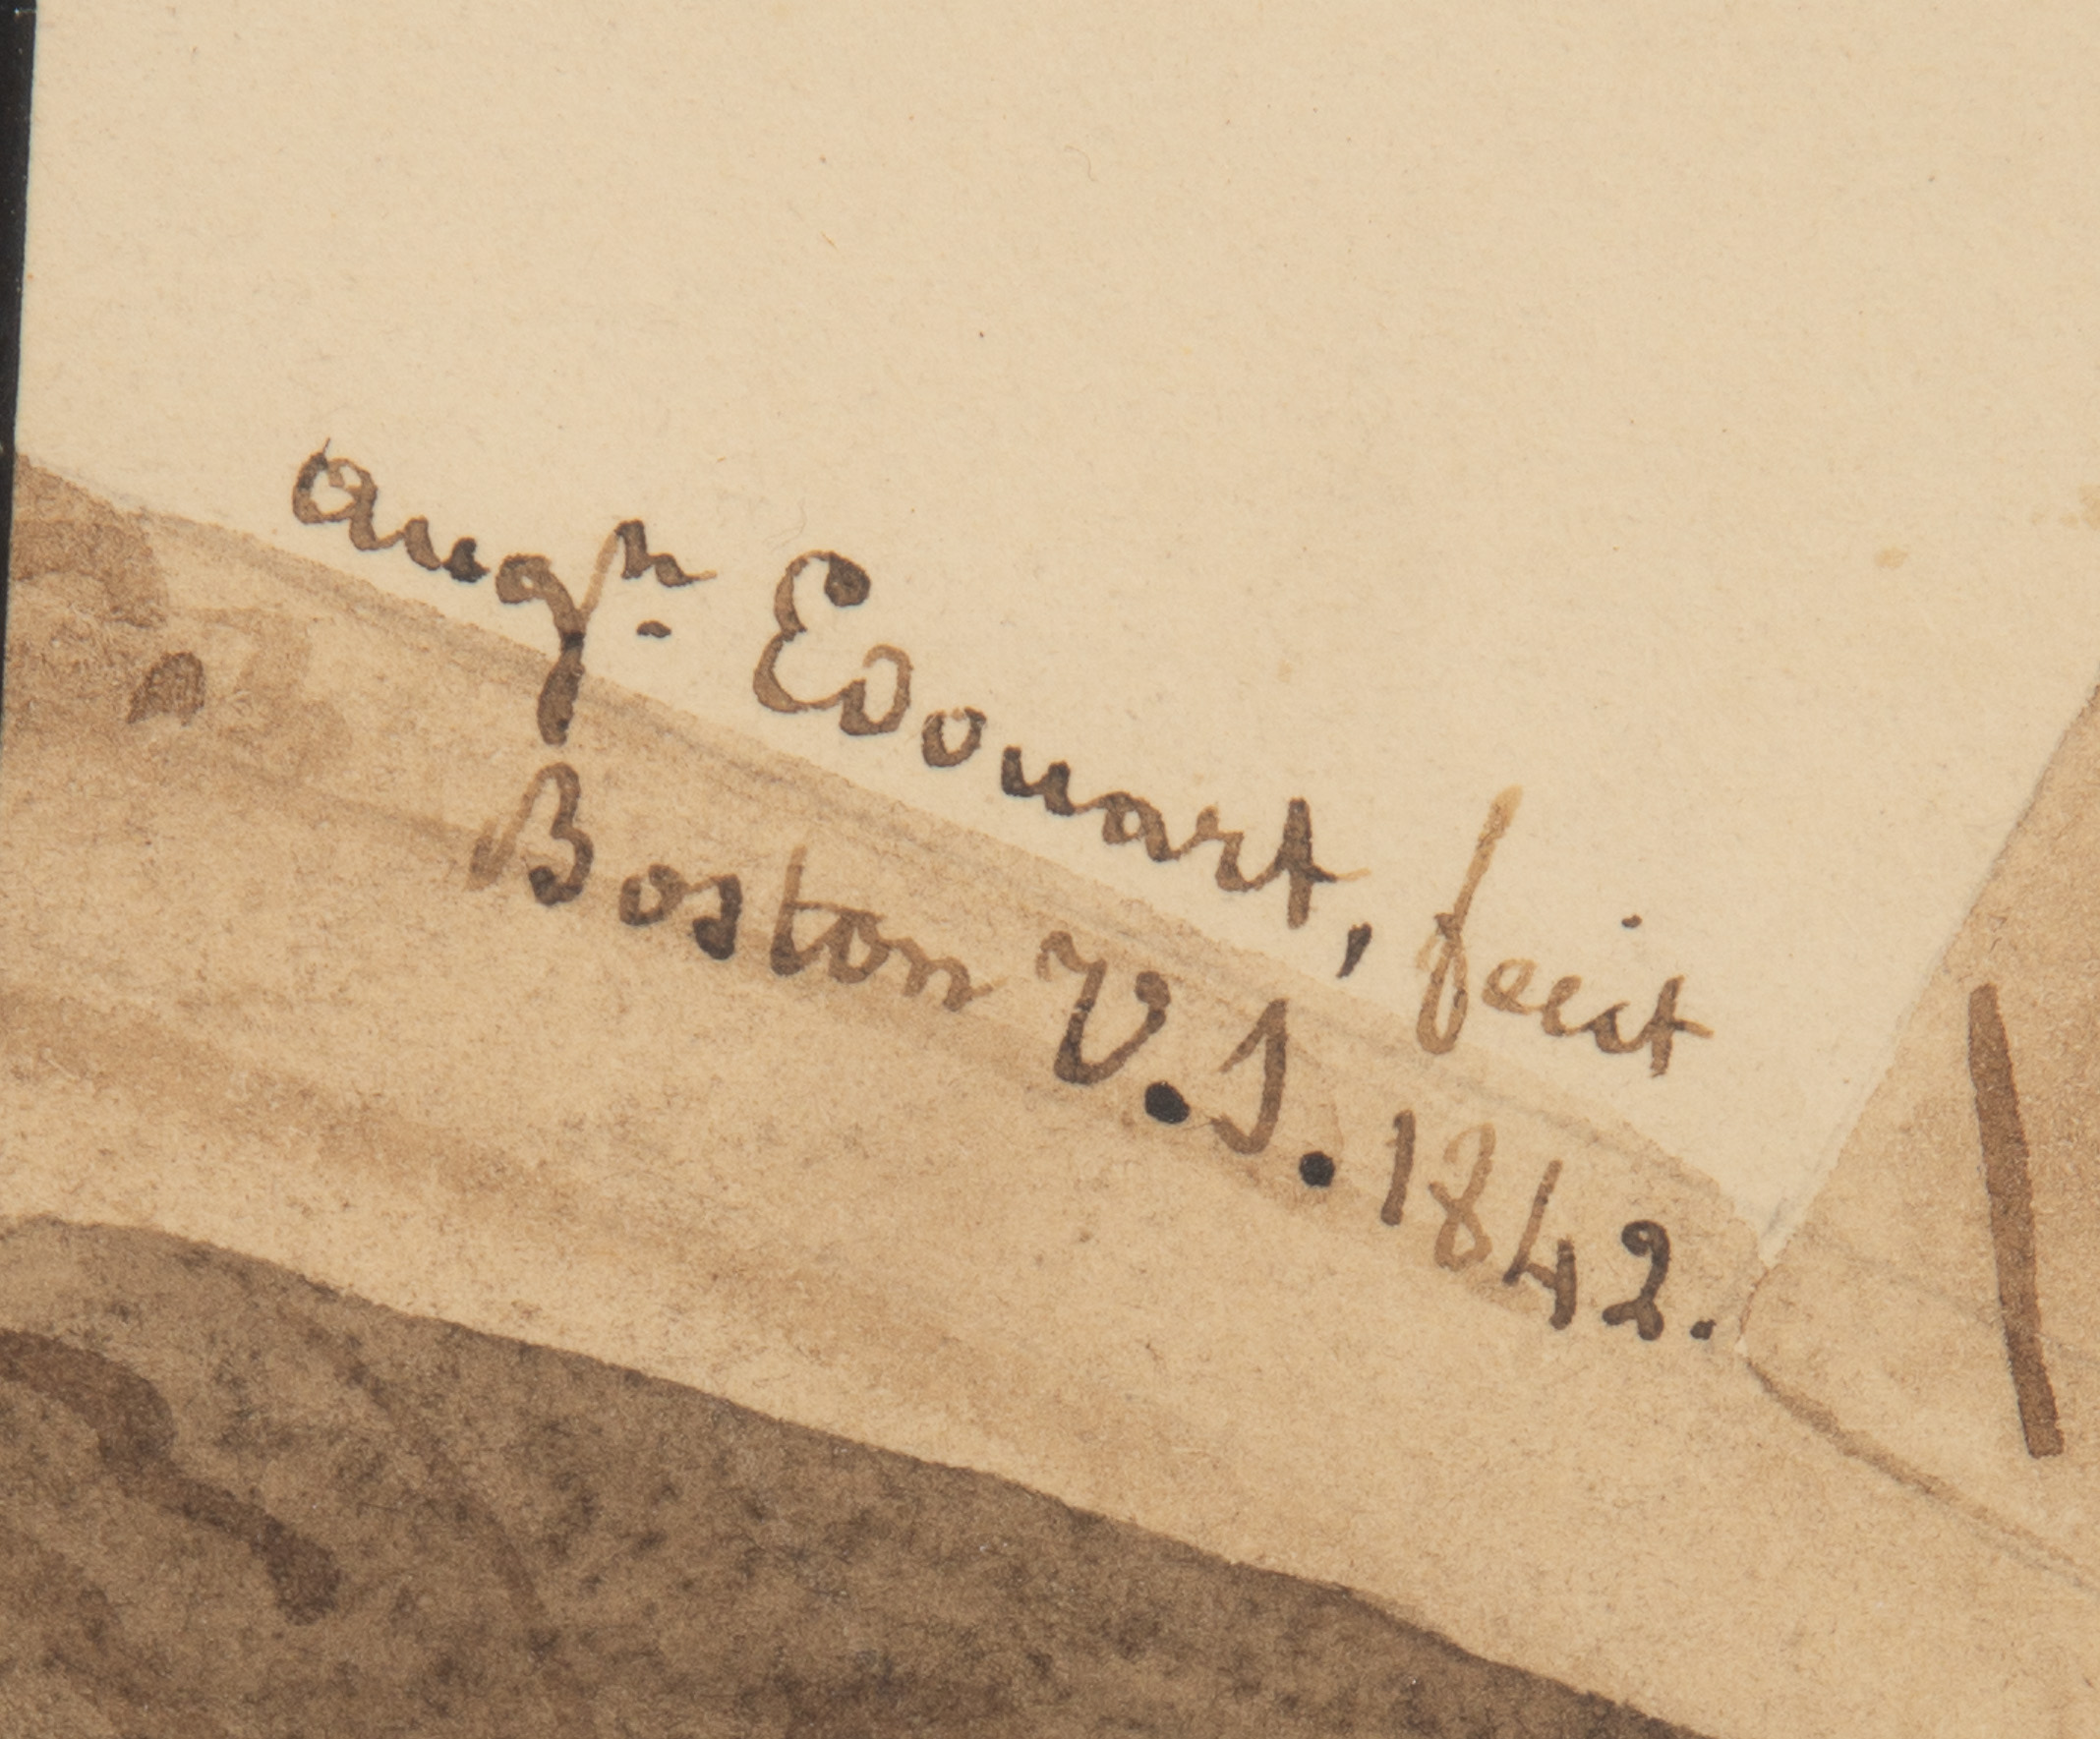 Augⁿ. Edouart, fecit
Boston U.S. 1842.